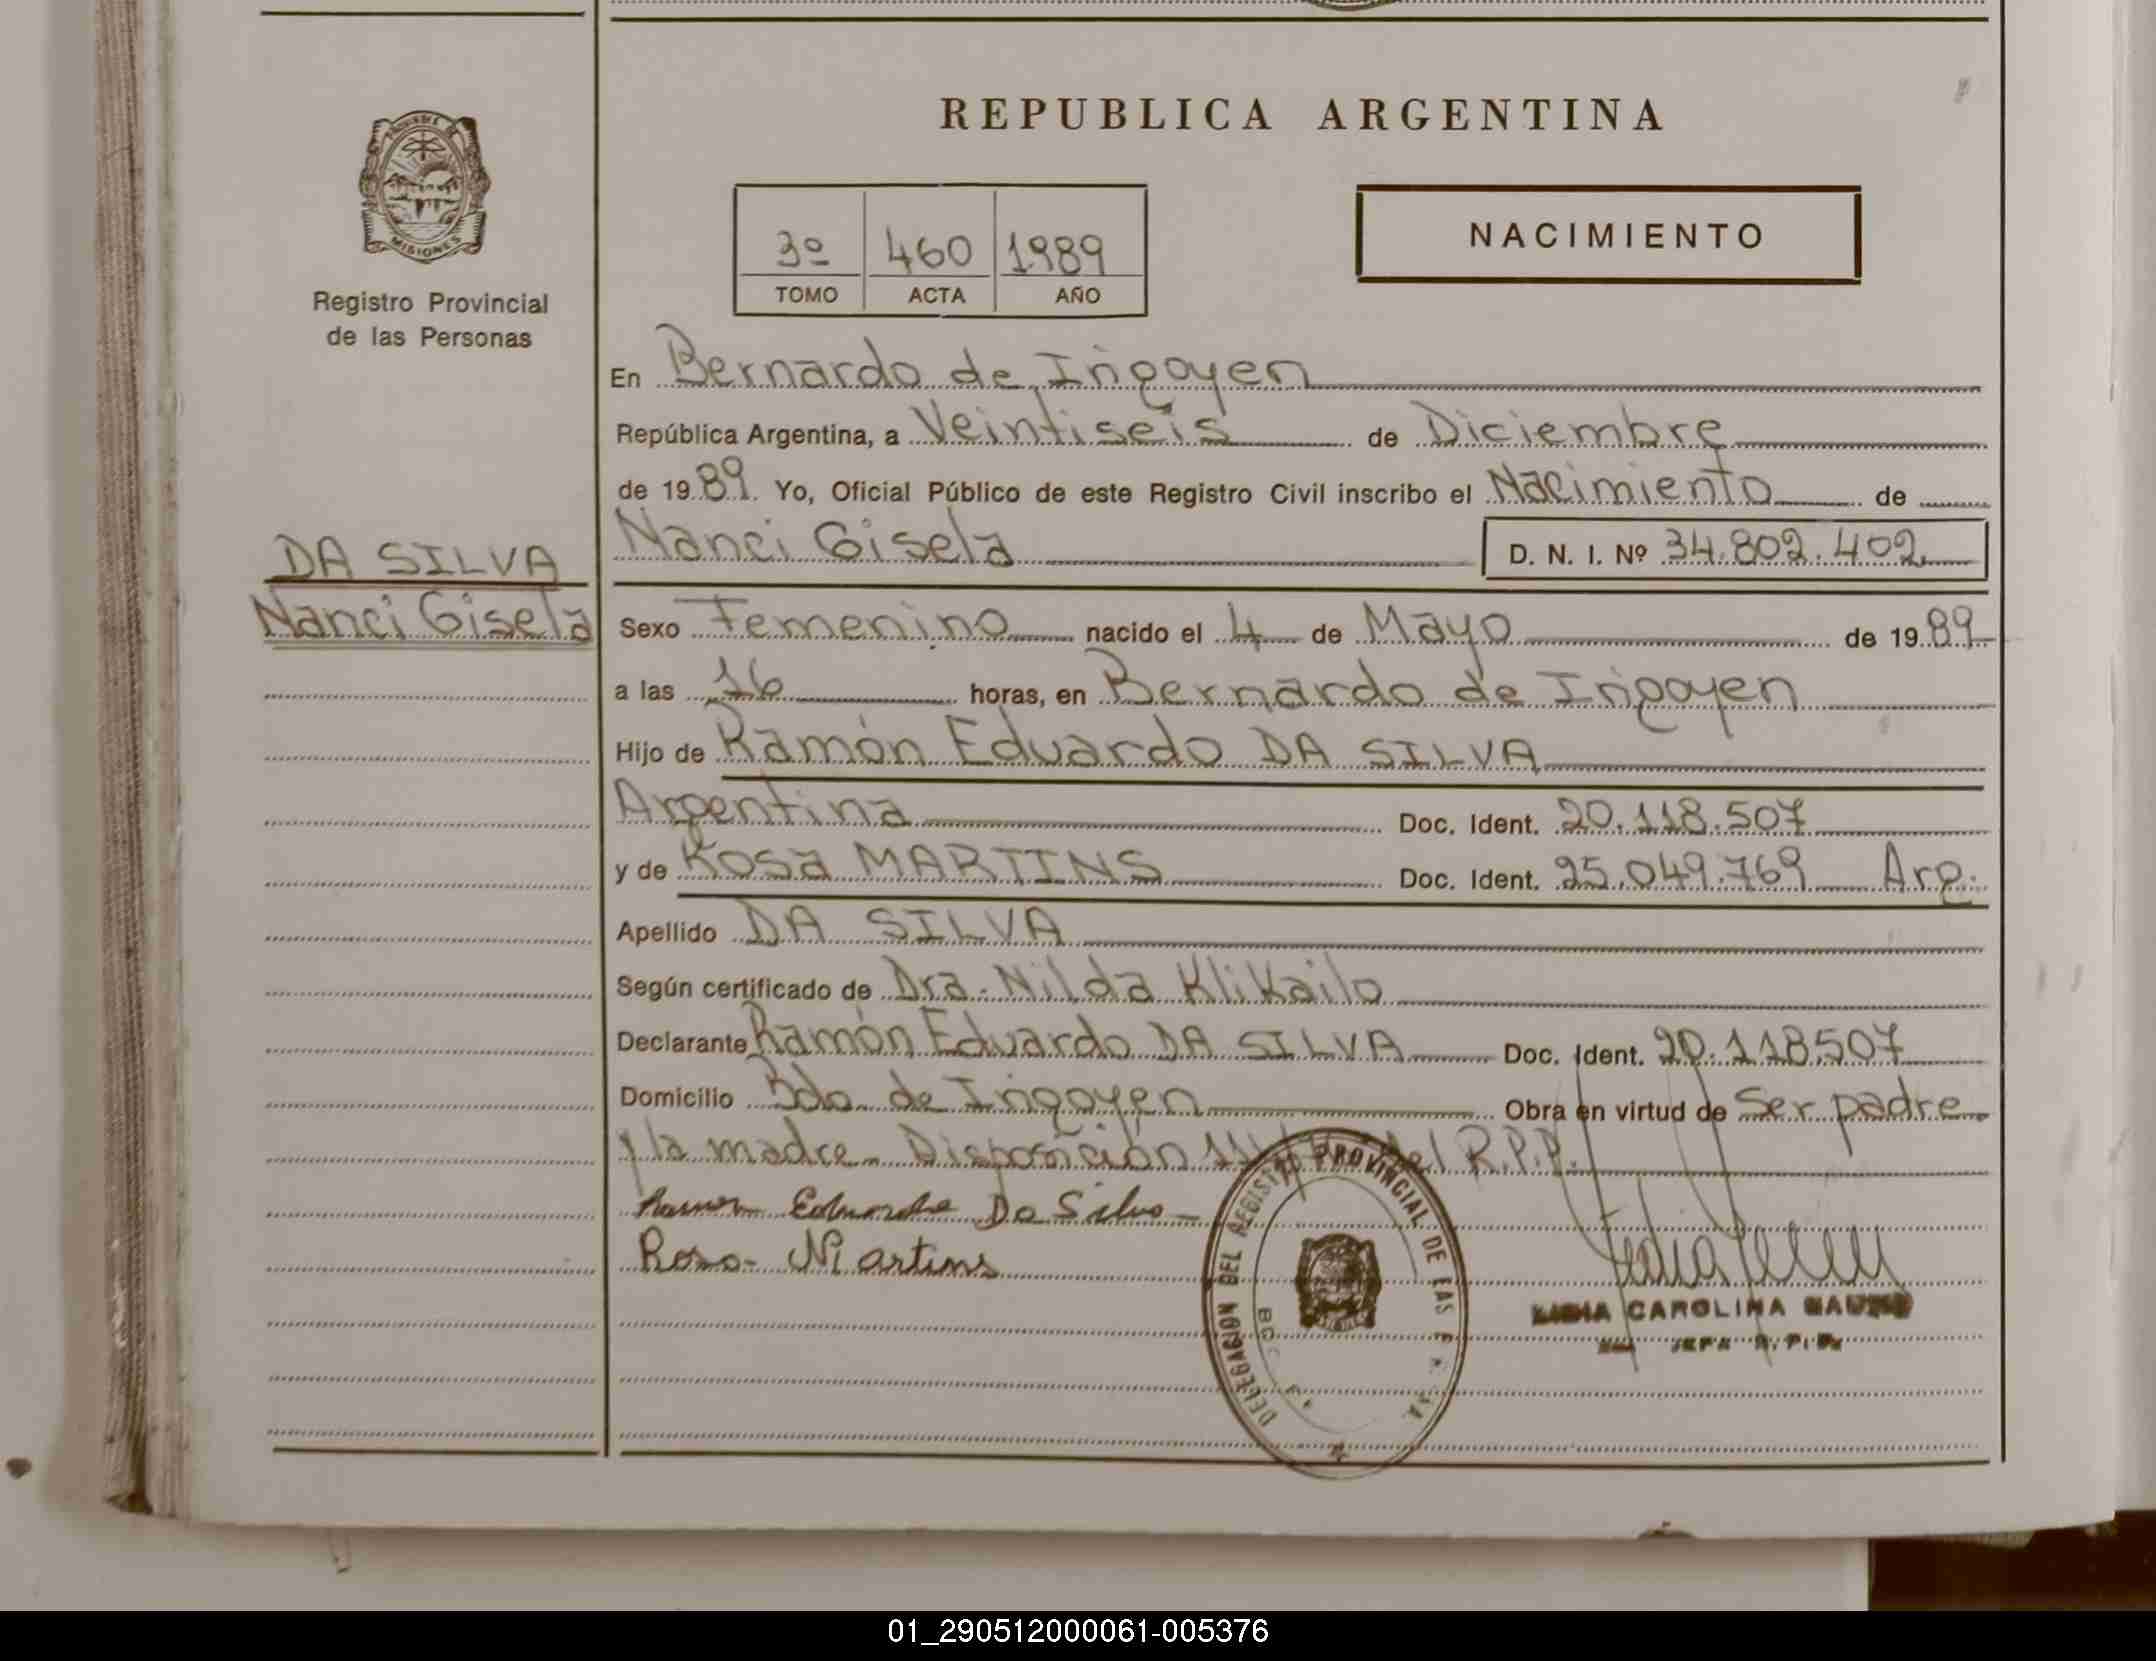 REPUBLICA ARGENTINA
PROVINCIA DE
MISIONES
Registro Provincial
de las Personas
3º 460 1989
TOMO ACTA AÑO
NACIMIENTO
En Bernardo de Irigoyen
República Argentina, a Veintiseis de Diciembre
de 1989. Yo, Oficial Público de este Registro Civil inscribo el Nacimiento de
DA SILVA
Nanci Gisela
Nanci Gisela D. N. I. Nº 34.802.402
Sexo Femenino nacido el 4 de Mayo de 1989
a las 16 horas, en Bernardo de Irigoyen
Hijo de Ramón Eduardo DA SILVA
Argentina Doc. Ident. 20.118.507
y de Rosa MARTINS Doc. Ident. 25.049.769 Arg.
Apellido DA SILVA
Según certificado de Dra. Nilda Klikailo
Declarante Ramón Eduardo DA SILVA Doc. Ident. 20.118.507
Domicilio Bdo de Irigoyen Obra en virtud de Ser padre
y la madre. Disposición del R.P.P.
Ramon Eduardo Da Silva
Rosa Martins
DELEGACION DEL REGISTRO PROVINCIAL DE LAS
LIDIA CAROLINA
JEFA R.P.P.
01_290512000061-005376